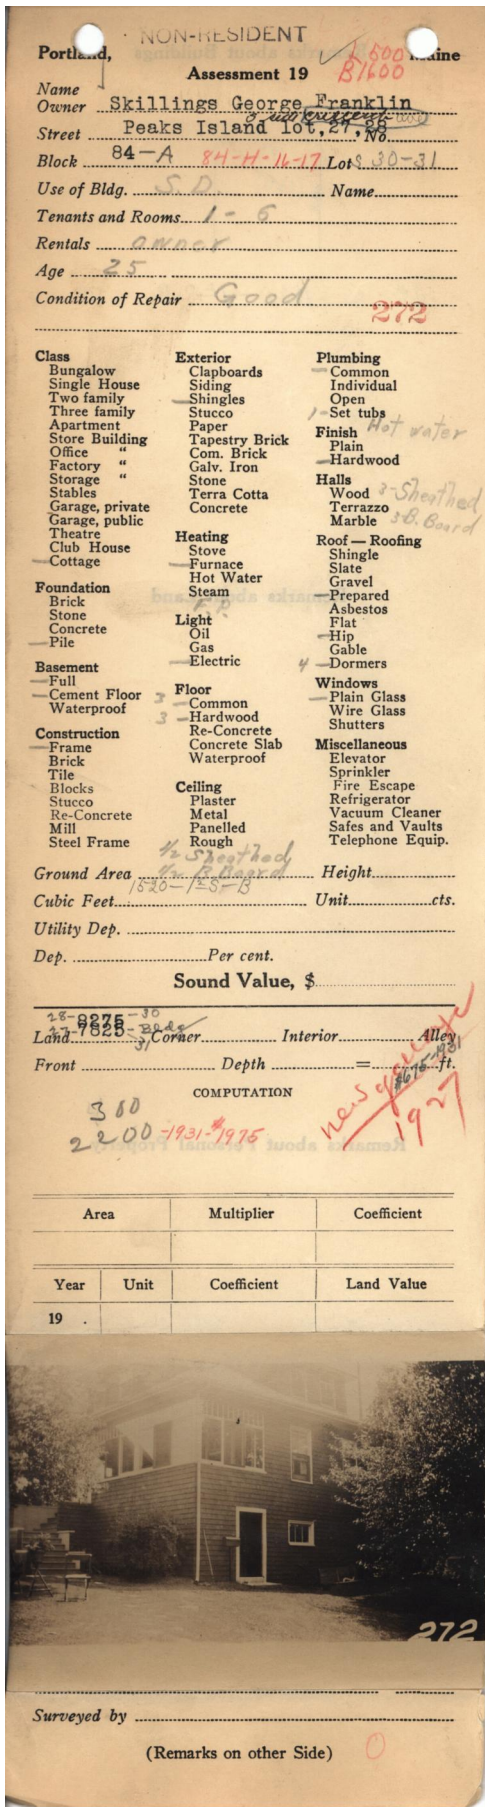 NON-RESIDENT
Portland, Maine
L 500
Assessment 19 B1600
Name
Owner Skillings George Franklin
Street Peaks Island lot,27,28 No.
Block 84-A 84-H-16-17 Lots 30-31
Use of Bldg. S.D. Name
Tenants and Rooms 1 - 6
Rentals owner
Age 25
Condition of Repair Good
272
Class
Bungalow
Single House
Two family
Three family
Apartment
Store Building
Office "
Factory "
Storage "
Stables
Garage, private
Garage, public
Theatre
Club House
Cottage
Foundation
Brick
Stone
Concrete
Pile
Basement
Full
Cement Floor
Waterproof
Construction
Frame
Brick
Tile
Blocks
Stucco
Re-Concrete
Mill
Steel Frame
Exterior
Clapboards
Siding
Shingles
Stucco
Paper
Tapestry Brick
Com. Brick
Galv. Iron
Stone
Terra Cotta
Concrete
Heating
Stove
Furnace
Hot Water
Steam
F.P.
Light
Oil
Gas
Electric
Floor
3 Common
3 Hardwood
Re-Concrete
Concrete Slab
Waterproof
Ceiling
Plaster
Metal
Panelled
Rough
1/2 Sheathed
1/2 B. Board
Plumbing
Common
Individual
Open
1 Set tubs
Hot water
Finish
Plain
Hardwood
Halls
Wood 3-Sheathed
Terrazzo
Marble 3-B. Board
Roof — Roofing
Shingle
Slate
Gravel
Prepared
Asbestos
Flat
Hip
Gable
4 Dormers
Windows
Plain Glass
Wire Glass
Shutters
Miscellaneous
Elevator
Sprinkler
Fire Escape
Refrigerator
Vacuum Cleaner
Safes and Vaults
Telephone Equip.
Ground Area Height
1520-1½S-B
Cubic Feet Unit cts.
Utility Dep.
Dep. Per cent.
Sound Value, $
28-8275-30
27-7825-Bldg
31
Land Corner Interior Alley
Front Depth = ft.
$675-1931
new garage
1927
COMPUTATION
300
2200-1931-$1975
Area Multiplier Coefficient
Year Unit Coefficient Land Value
19 .
272
Surveyed by
(Remarks on other Side) O